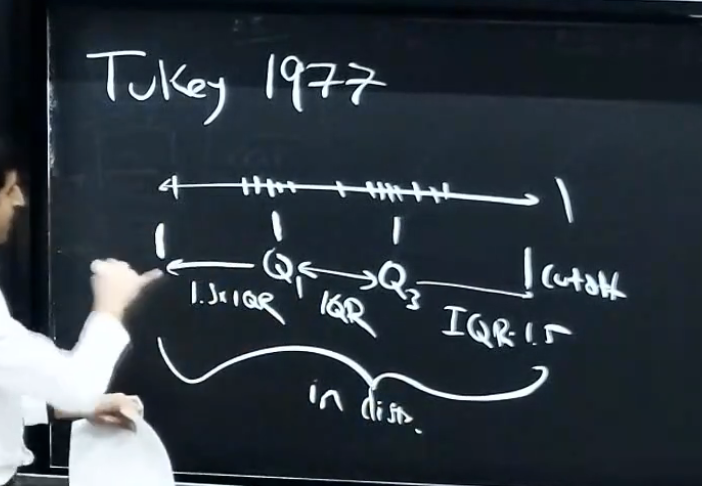 Tukey 1977
Q1 Q3 cutoff
1.5x IQR IQR IQR·1.5
in dist.